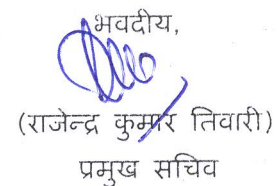 भवदीय,
(राजेन्द्र कुमार तिवारी)
प्रमुख सचिव